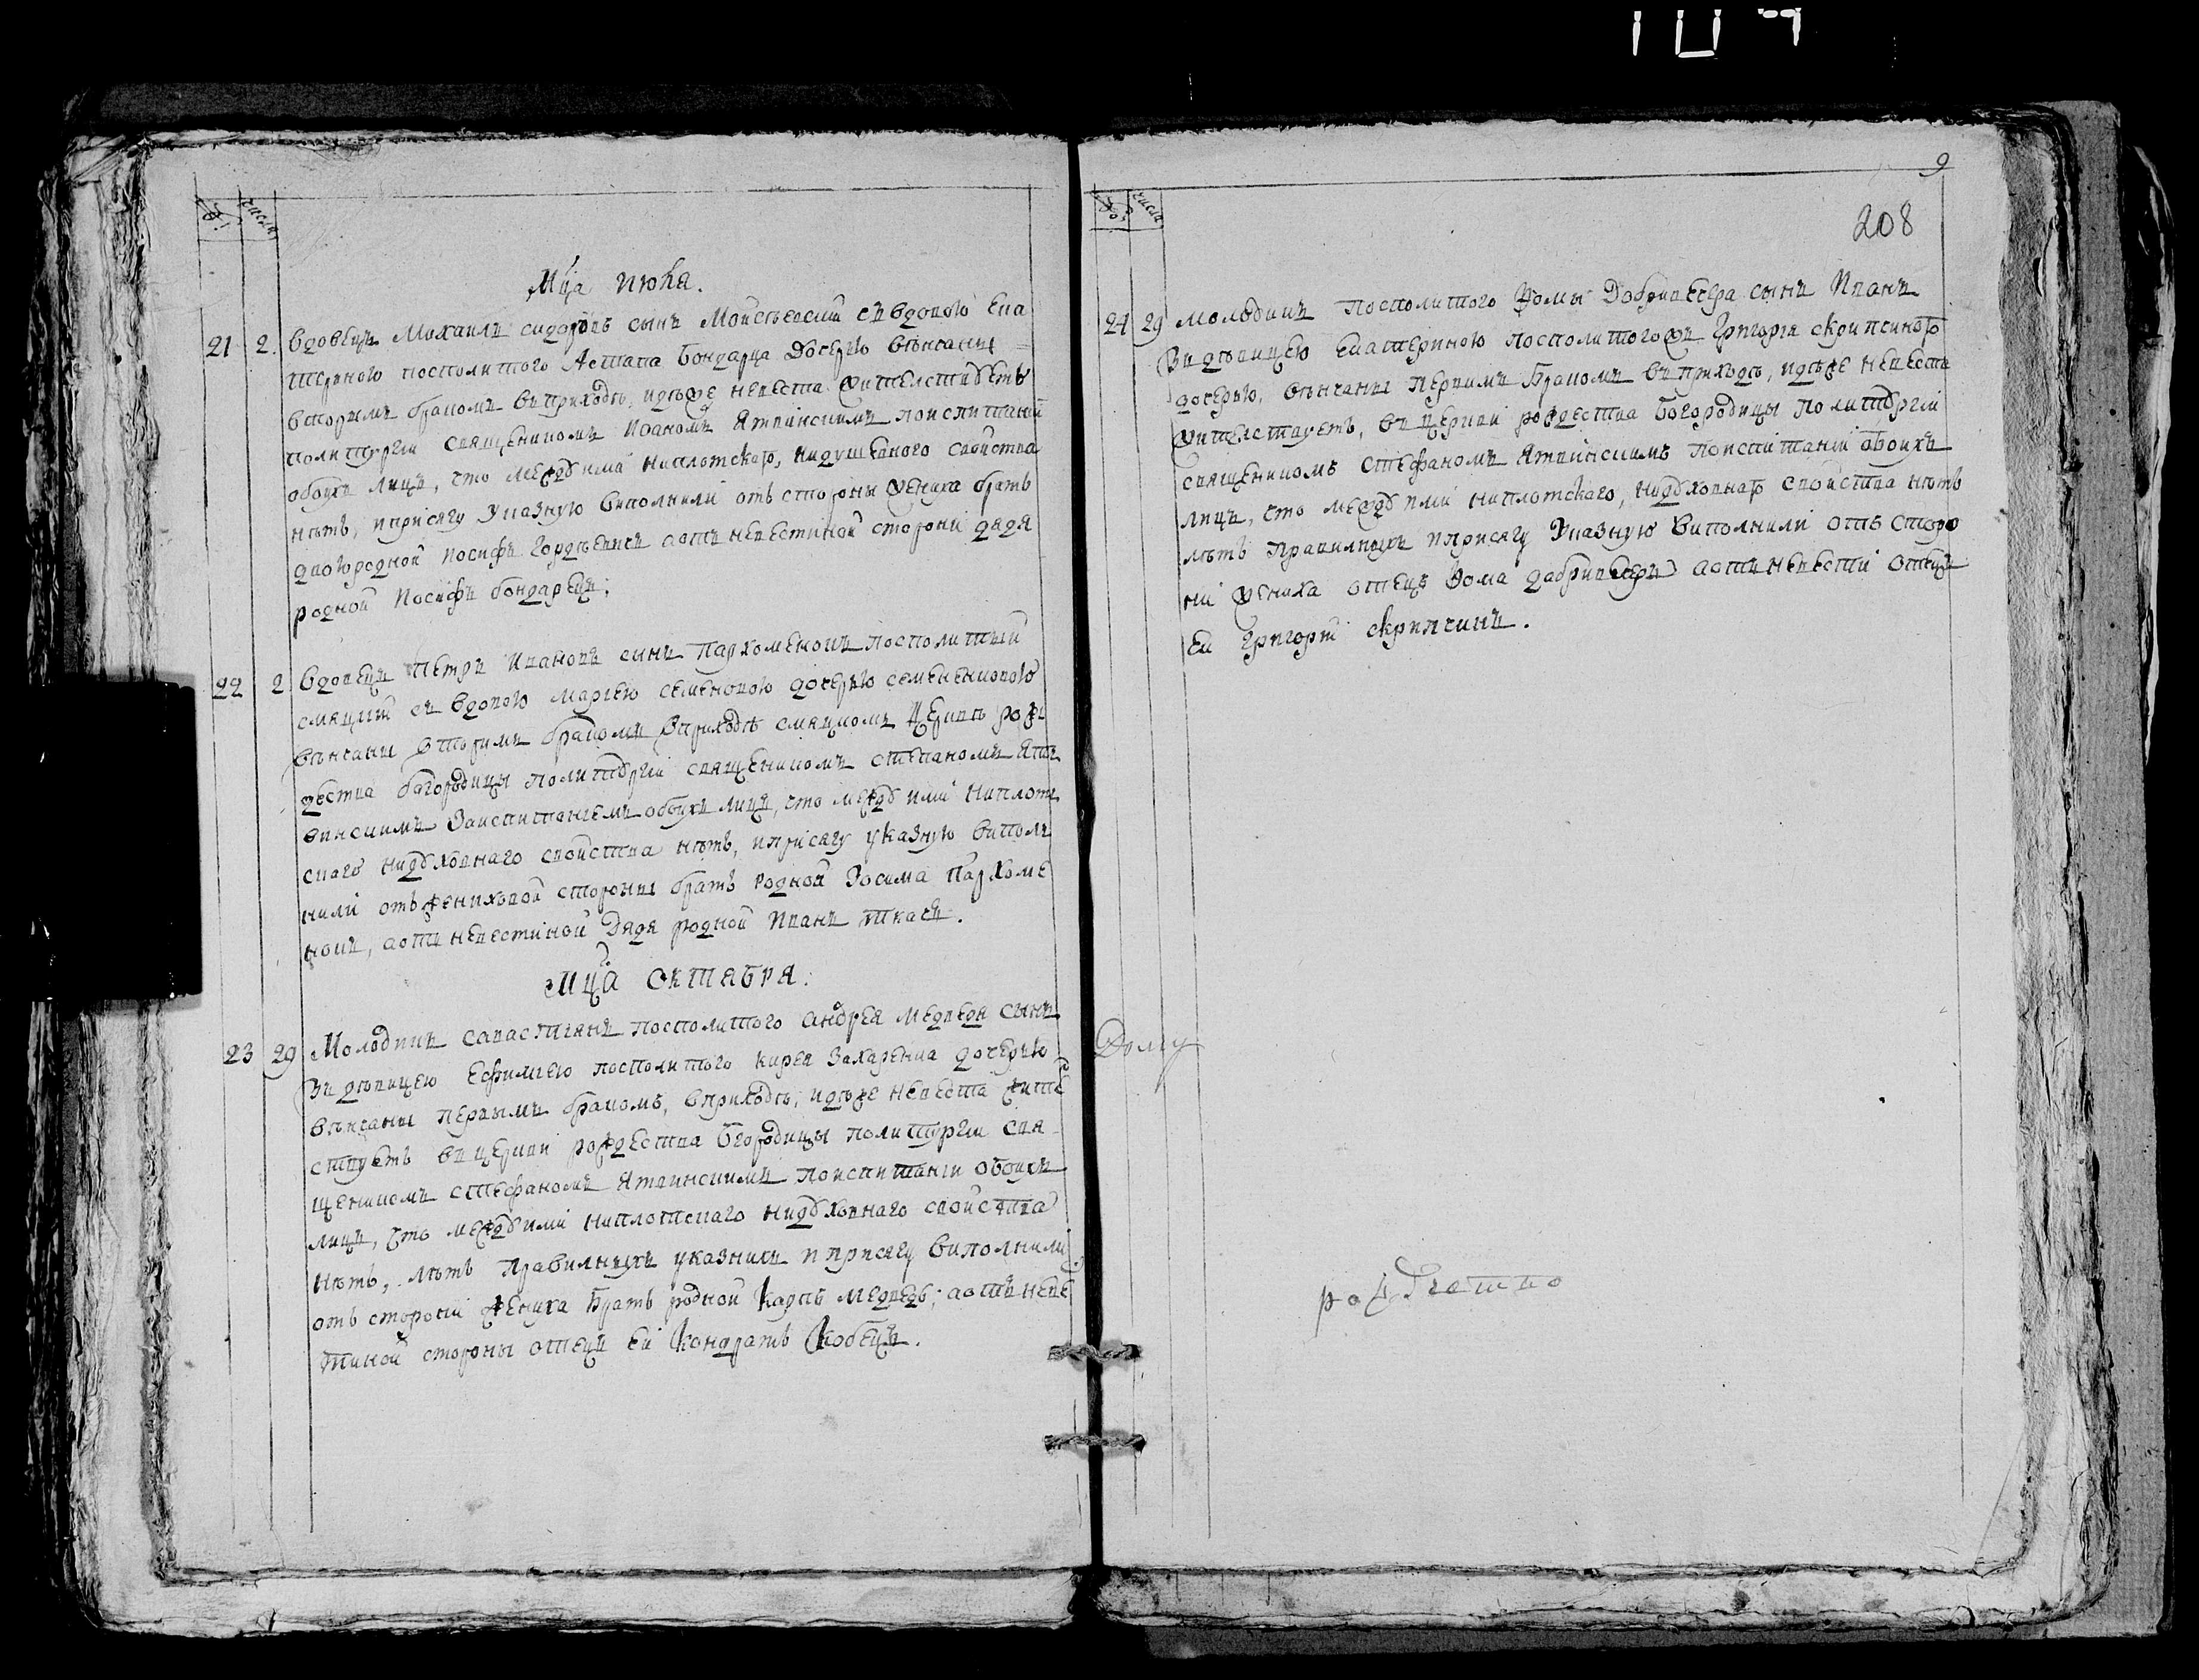 числа
Мца июня.
21 2. вдовецъ Михаилъ сидоровъ сынъ Мойсѣевскій съ вдовою Ека
териною посполитого Астапа Бондарца дочерю вѣнчаны
вторымъ бракомъ въ приходѣ, идѣже невеста жителствуетъ
по литургіи священикомъ Иоаномъ Ятвинскимъ по испитаній
обоихъ лицъ, что между ими ни плотскаго, ни душевного свойства
нѣтъ, и присягу указную виполнилі отъ стороны жениха братъ
двоюродной Иосифъ Гордѣевичъ а отъ невестиной стороні дядя
родной Иосифъ бондарецъ;
22 2 вдовецъ Петръ Ивановъ синъ Пархоменокъ посполитый
смяцкій съ вдовою Марѳею семеновою дочерю семененковою
вѣнчаны вторимъ бракомъ въ приходѣ смяцкомъ Церквѣ рож
дества багородицы по литургіи священикомъ степаномъ Ят
винскимъ За испитаніемъ обоихъ лицъ, что между имі ни плот
скаго ни духовнаго свойства нѣтъ, и присягу указную випол
нилі отъ жениховой стороны братъ родной Зосима Пархоме
нокъ, а отъ невестіной Дядя родной Иванъ ткачъ.
Мца октября.
23 29 Молодикъ савастіянъ посполитого андрея медведя сынъ
Зъ дѣвицею Ефиміею посполитого кирея Захаренка дочерю
вѣнчаны первымъ бракомъ, в приходѣ, идѣже невеста жите
ствуетъ въ церкви рождества Бгородицы по литургіи свя
щеникомъ стефаномъ Ятвинскимъ по испитаніи обоихъ
лицъ, что между имі ни плотскаго ни духовнаго свойства
нѣтъ, лѣтъ правилныхъ указнихъ и присягу виполнили
отъ стороні жениха Братъ родной Карпъ Медведь; а отъ неве
стиной стороны отецъ ей Кондратъ Кобецъ.
9
208
числа
24 29 молодикъ посполитого Ѳомы Добривечера сынъ Иванъ
Зъ дѣвицею Екатериною посполитого Григорія скрипчиного
дочерю, вѣнчаны первимъ Бракомъ въ приходѣ, идѣже невеста
жителствуетъ, въ церкви рождества богородицы по литургіи
священикомъ стефаномъ Ятвинскимъ по испитаніи обоихъ
лицъ, что между имі ни плотскаго, ни духовнаго свойства нѣтъ
лѣтъ правилныхъ и присягу Указную виполнили отъ сторо
ні жениха отецъ Ѳома добривечеръ а отъ невесті отецъ
ей Григорій скрипчинъ.
Дому
рождество